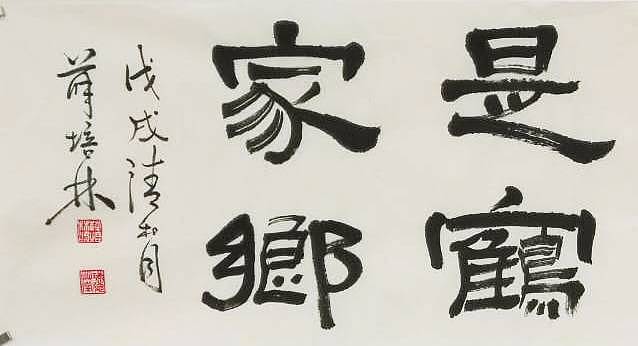 是鶴
家鄉
戊戌清和月
薛培林